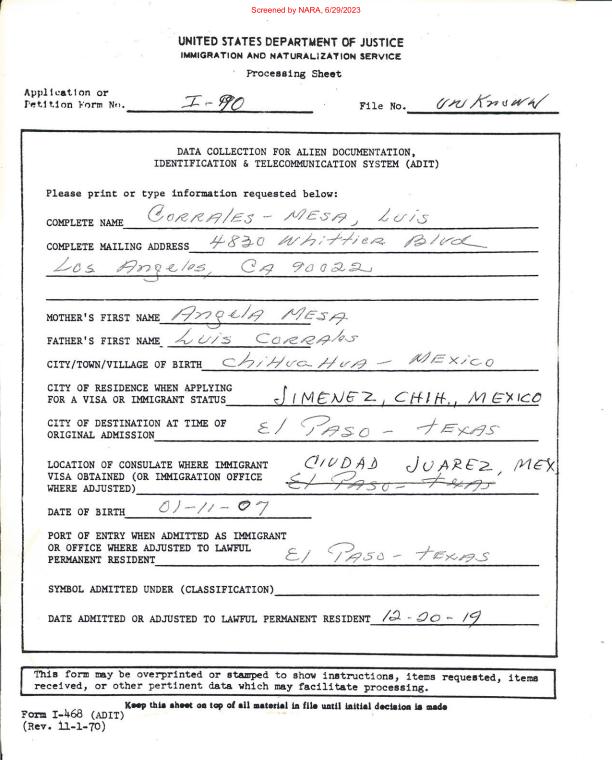 Screened by NARA, 6/29/2023
UNITED STATES DEPARTMENT OF JUSTICE
IMMIGRATION AND NATURALIZATION SERVICE
Processing Sheet
Application or
Petition Form No. I-90 File No. UNKNOWN
DATA COLLECTION FOR ALIEN DOCUMENTATION,
IDENTIFICATION & TELECOMMUNICATION SYSTEM (ADIT)
Please print or type information requested below:
COMPLETE NAME CORRALES - MESA, LUIS
COMPLETE MAILING ADDRESS 4830 Whittier Blvd
Los Angeles, CA 90022
MOTHER'S FIRST NAME Angela MESA
FATHER'S FIRST NAME Luis CORRALES
CITY/TOWN/VILLAGE OF BIRTH CHIHUAHUA - MEXICO
CITY OF RESIDENCE WHEN APPLYING
FOR A VISA OR IMMIGRANT STATUS JIMENEZ, CHIH., MEXICO
CITY OF DESTINATION AT TIME OF
ORIGINAL ADMISSION El PASO - TEXAS
LOCATION OF CONSULATE WHERE IMMIGRANT CIUDAD JUAREZ, MEX
VISA OBTAINED (OR IMMIGRATION OFFICE
WHERE ADJUSTED) El PASO - TEXAS
DATE OF BIRTH 01-11-07
PORT OF ENTRY WHEN ADMITTED AS IMMIGRANT
OR OFFICE WHERE ADJUSTED TO LAWFUL
PERMANENT RESIDENT El PASO - TEXAS
SYMBOL ADMITTED UNDER (CLASSIFICATION)
DATE ADMITTED OR ADJUSTED TO LAWFUL PERMANENT RESIDENT 12-20-19
This form may be overprinted or stamped to show instructions, items requested, items
received, or other pertinent data which may facilitate processing.
Keep this sheet on top of all material in file until initial decision is made
Form I-468 (ADIT)
(Rev. 11-1-70)